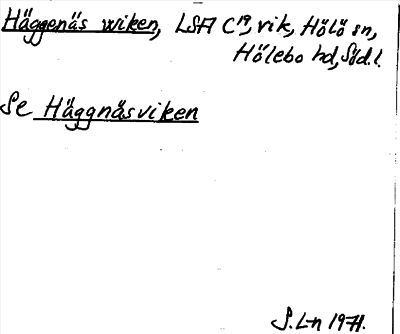 Häggenäs wiken, LSA C19, vik, Hölö sn,
Hölebo hd, Söd.l.
Se Häggnäsviken
S.L-n 1971.